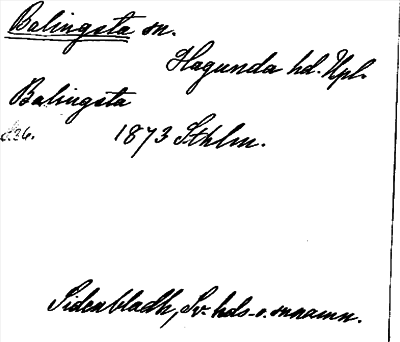 Balingsta sn.
Hagunda hd. Upl.
Balingsta
s.36. 1873 Sthlm.
Sidenbladh, Sv. hds- o. snnamn.